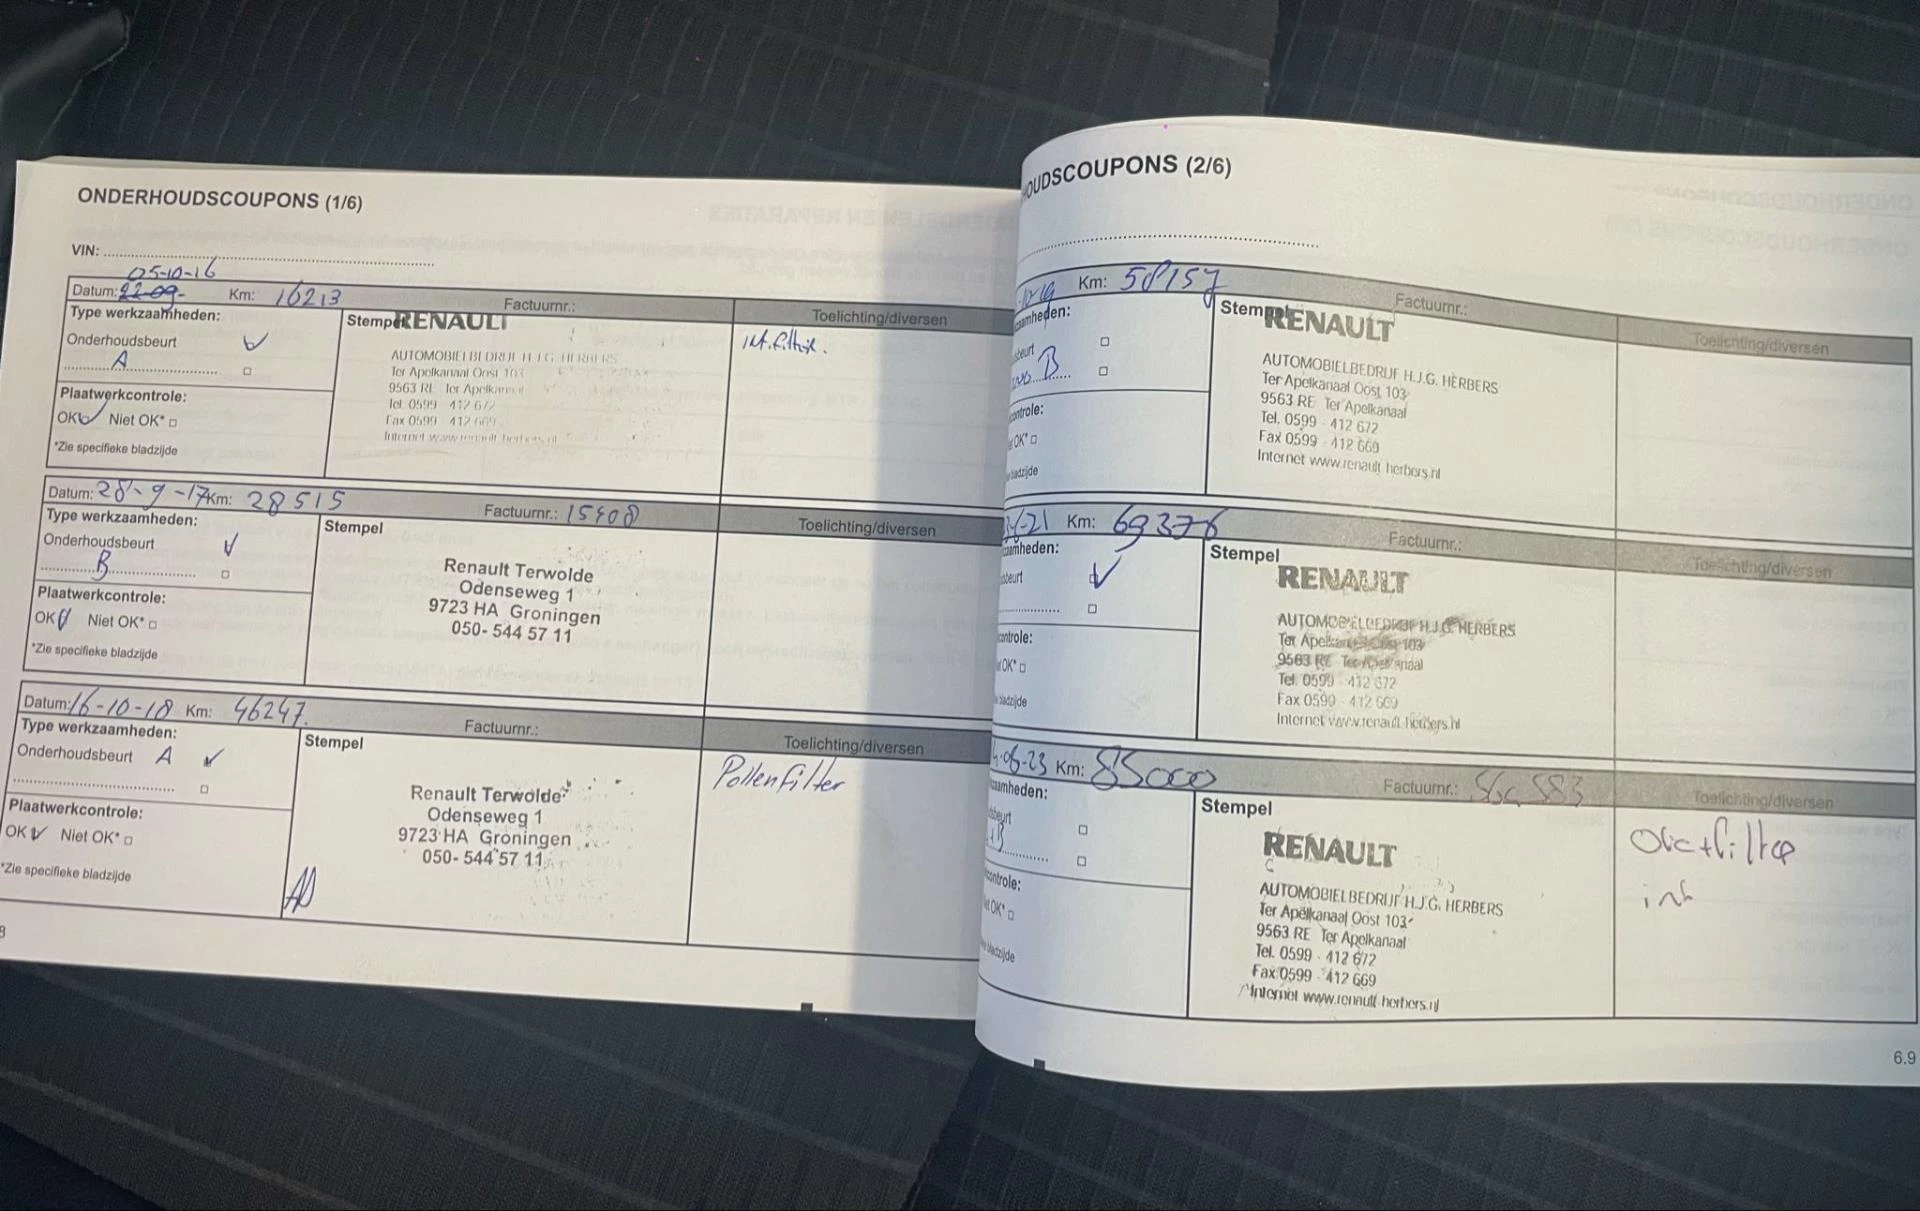 ONDERHOUDSCOUPONS (1/6)
VIN:
05-10-16
Datum: 22-09- Km: 16213 Factuurnr.: Toelichting/diversen
Type werkzaamheden:
Onderhoudsbeurt
A
Plaatwerkcontrole:
OK Niet OK*
*Zie specifieke bladzijde
Stempel
RENAULT
AUTOMOBIELBEDRIJF H.J.G. HERBERS
Ter Apelkanaal Oost 103
9563 RE Ter Apelkanaal
Tel. 0599 - 412 672
Fax 0599 - 412 669
Internet www.renault-herbers.nl
Int.
Datum: 28-9-17 Km: 28515 Factuurnr.: 15408 Toelichting/diversen
Type werkzaamheden:
Onderhoudsbeurt
B
Plaatwerkcontrole:
OK Niet OK*
*Zie specifieke bladzijde
Stempel
Renault Terwolde
Odenseweg 1
9723 HA Groningen
050- 544 57 11
Datum: 16-10-18 Km: 46247. Factuurnr.: Toelichting/diversen
Type werkzaamheden:
Onderhoudsbeurt A
Plaatwerkcontrole:
OK Niet OK*
*Zie specifieke bladzijde
Stempel
Renault Terwolde
Odenseweg 1
9723 HA Groningen
050- 544 57 11
Pollenfilter
8
HOUDSCOUPONS (2/6)
Km: 58157 Factuurnr.: Toelichting/diversen
zaamheden:
sbeurt
B
controle:
OK*
bladzijde
Stempel
RENAULT
AUTOMOBIELBEDRIJF H.J.G. HERBERS
Ter Apelkanaal Oost 103
9563 RE Ter Apelkanaal
Tel. 0599 - 412 672
Fax 0599 - 412 669
Internet www.renault-herbers.nl
-21 Km: 69376 Factuurnr.: Toelichting/diversen
zaamheden:
sbeurt
controle:
OK*
bladzijde
Stempel
RENAULT
AUTOMOBIELBEDRIJF H.J.G. HERBERS
Ter Apelkanaal Oost 103
9563 RE Ter Apelkanaal
Tel. 0599 - 412 672
Fax 0599 - 412 669
Internet www.renault-herbers.nl
-06-23 Km: 85000 Factuurnr.: Toelichting/diversen
zaamheden:
sbeurt
B
controle:
OK*
bladzijde
Stempel
RENAULT
AUTOMOBIELBEDRIJF H.J.G. HERBERS
Ter Apelkanaal Oost 103
9563 RE Ter Apelkanaal
Tel. 0599 - 412 672
Fax 0599 - 412 669
Internet www.renault-herbers.nl
6.9